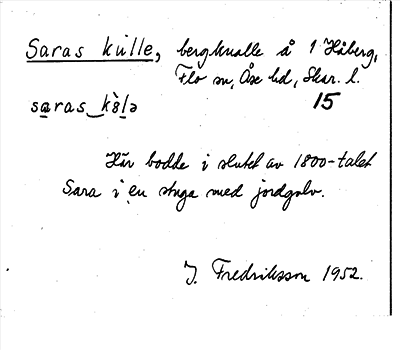 Saras kulle, bergknalle å 1 Håberg,
Flo sn, Åse hd, Skar. l.
saras k8lə 15
Här bodde i slutet av 1800-talet
Sara i en stuga med jordgolv.
J. Fredriksson 1952.